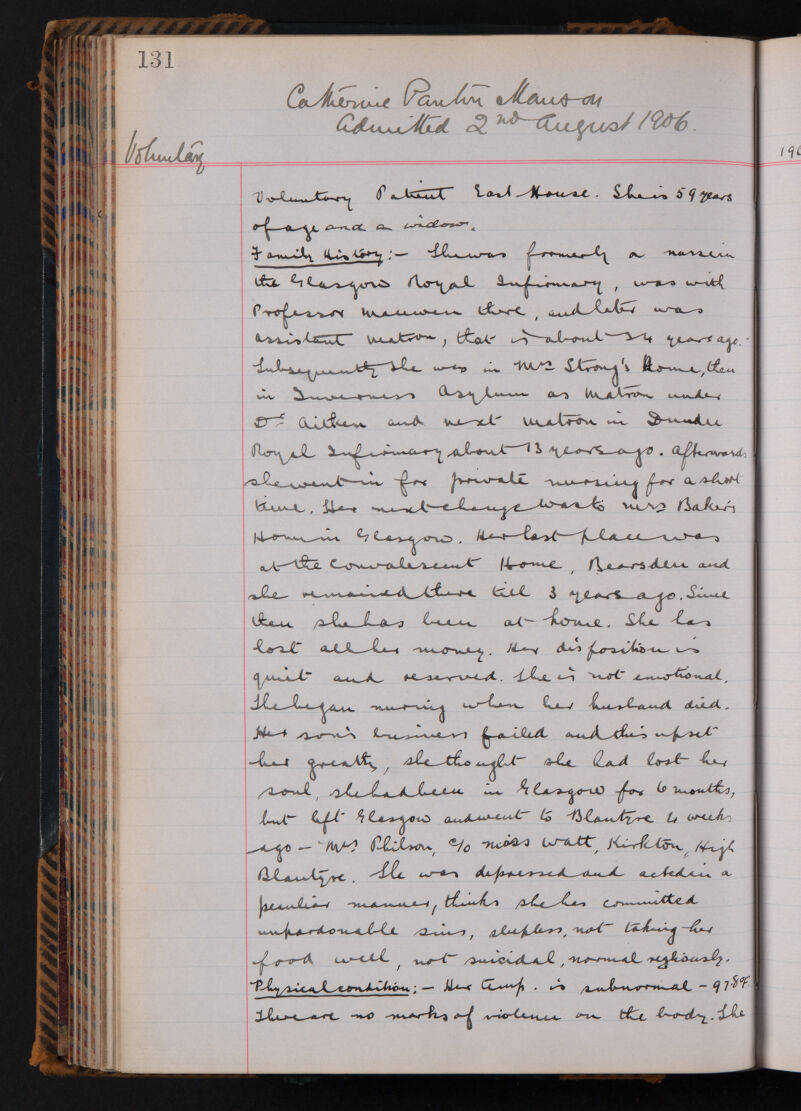 131
Catherine Panton Manson
Admitted 2nd August 1906.
Voluntary
190
Voluntary Patient East House. She is 59 years
of age and a widow.
Family History:- She was formerly a nurse in
the Glasgow Royal Infirmary, was with
Professor Macewen there, and later was
assistant matron, that is about 24 years ago.
Subsequently she was in Mrs Strong's Home, then
in Inverness Asylum as Matron under
Dr Aitken and next matron in Dundee
Royal Infirmary about 13 years ago. Afterwards
she went in for private nursing for a short
time. Her next change was to Mrs Baker's
Home in Glasgow. Her last place was
at the Convalescent Home, Bearsden and
she remained there till 3 years ago. Since
then she has been at home. She has
lost all her money. Her disposition is
quiet and reserved. She is not emotional.
She began nursing when her husband died.
Her son's business failed and this upset
her greatly, she thought she had lost her
soul, she had been in Glasgow for 6 months,
but left Glasgow and went to Blantyre 4 weeks
ago - Mrs Philson, c/o Miss Watt, Kirkton, High
Blantyre. She was depressed and acted in a
peculiar manner, thinks she has committed
unpardonable sins, sleepless, not taking her
food well, not suicidal, normal religiously.
Physical condition:- Her temp. is subnormal - 97.8°F.
There are no marks of violence on the body. She